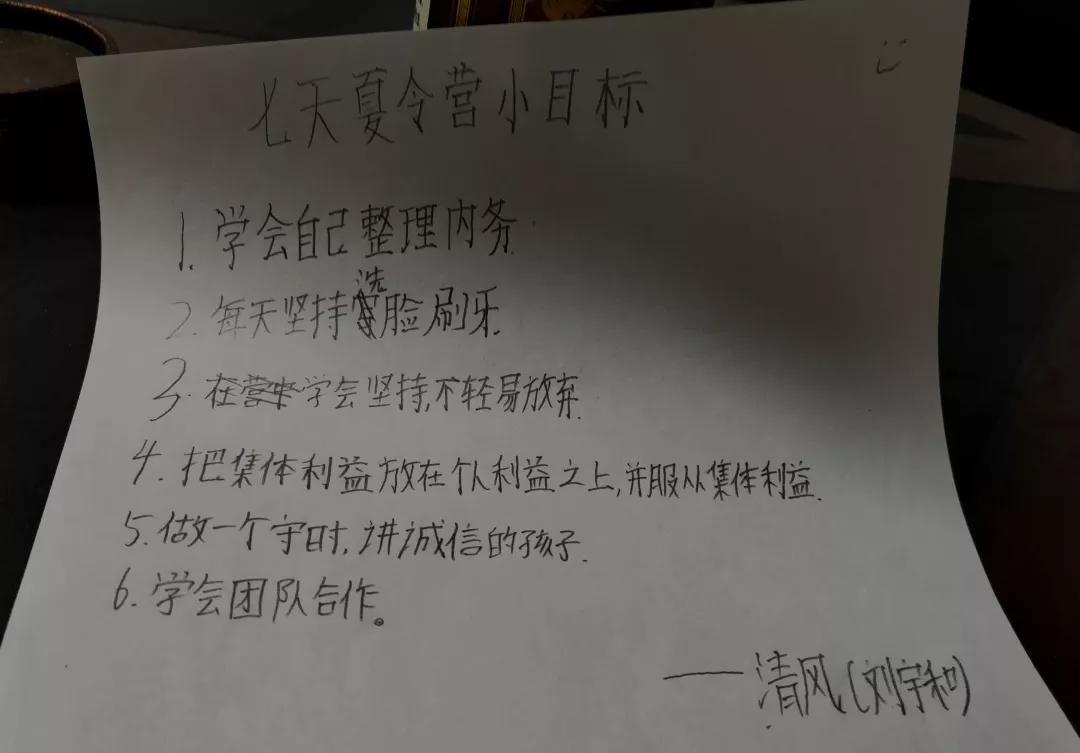 七天夏令营小目标
1. 学会自己整理内务.
2. 每天坚持洗脸刷牙.
3. 在营中学会坚持,不轻易放弃.
4. 把集体利益放在个人利益之上,并服从集体利益.
5. 做一个守时,讲诚信的孩子.
6. 学会团队合作。
——清风(刘宇和)